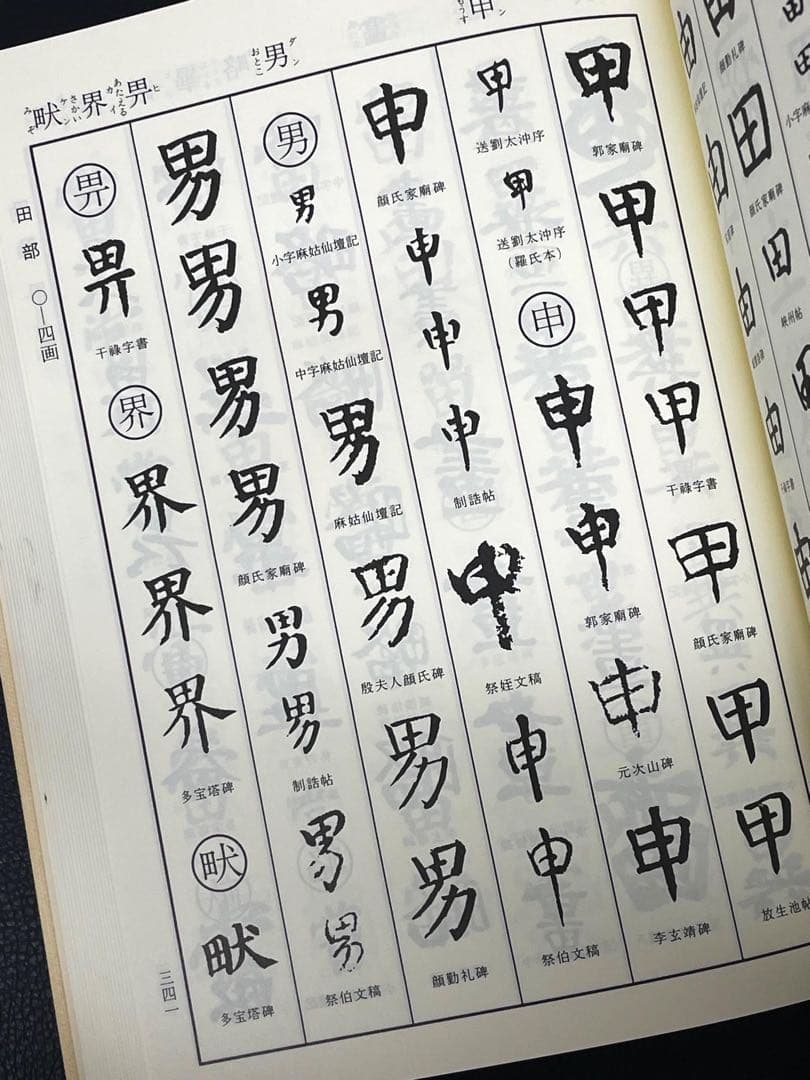 由
顔勤礼碑
田
顔氏家廟碑
田
申 シン もうす
男 ダン おとこ
畀 ヒ あたえる
界 カイ さかい
畎 ケン みぞ
甲
郭家廟碑
甲
甲
甲
干祿字書
甲
顔氏家廟碑
甲
甲
放生池帖
甲
送劉太沖序
甲
送劉太沖序
(羅氏本)
申
申
申
郭家廟碑
申
元次山碑
申
李玄靖碑
申
顔氏家廟碑
申
申
申
制誥帖
申
祭姪文稿
申
申
祭伯文稿
男
男
小字麻姑仙壇記
男
中字麻姑仙壇記
男
麻姑仙壇記
男
殷夫人顔氏碑
男
男
顔勤礼碑
男
男
男
男
顔氏家廟碑
男
男
制誥帖
男
男
祭伯文稿
畀
畀
干祿字書
界
界
界
界
多宝塔碑
畎
畎
多宝塔碑
田部 〇―四画
三四一